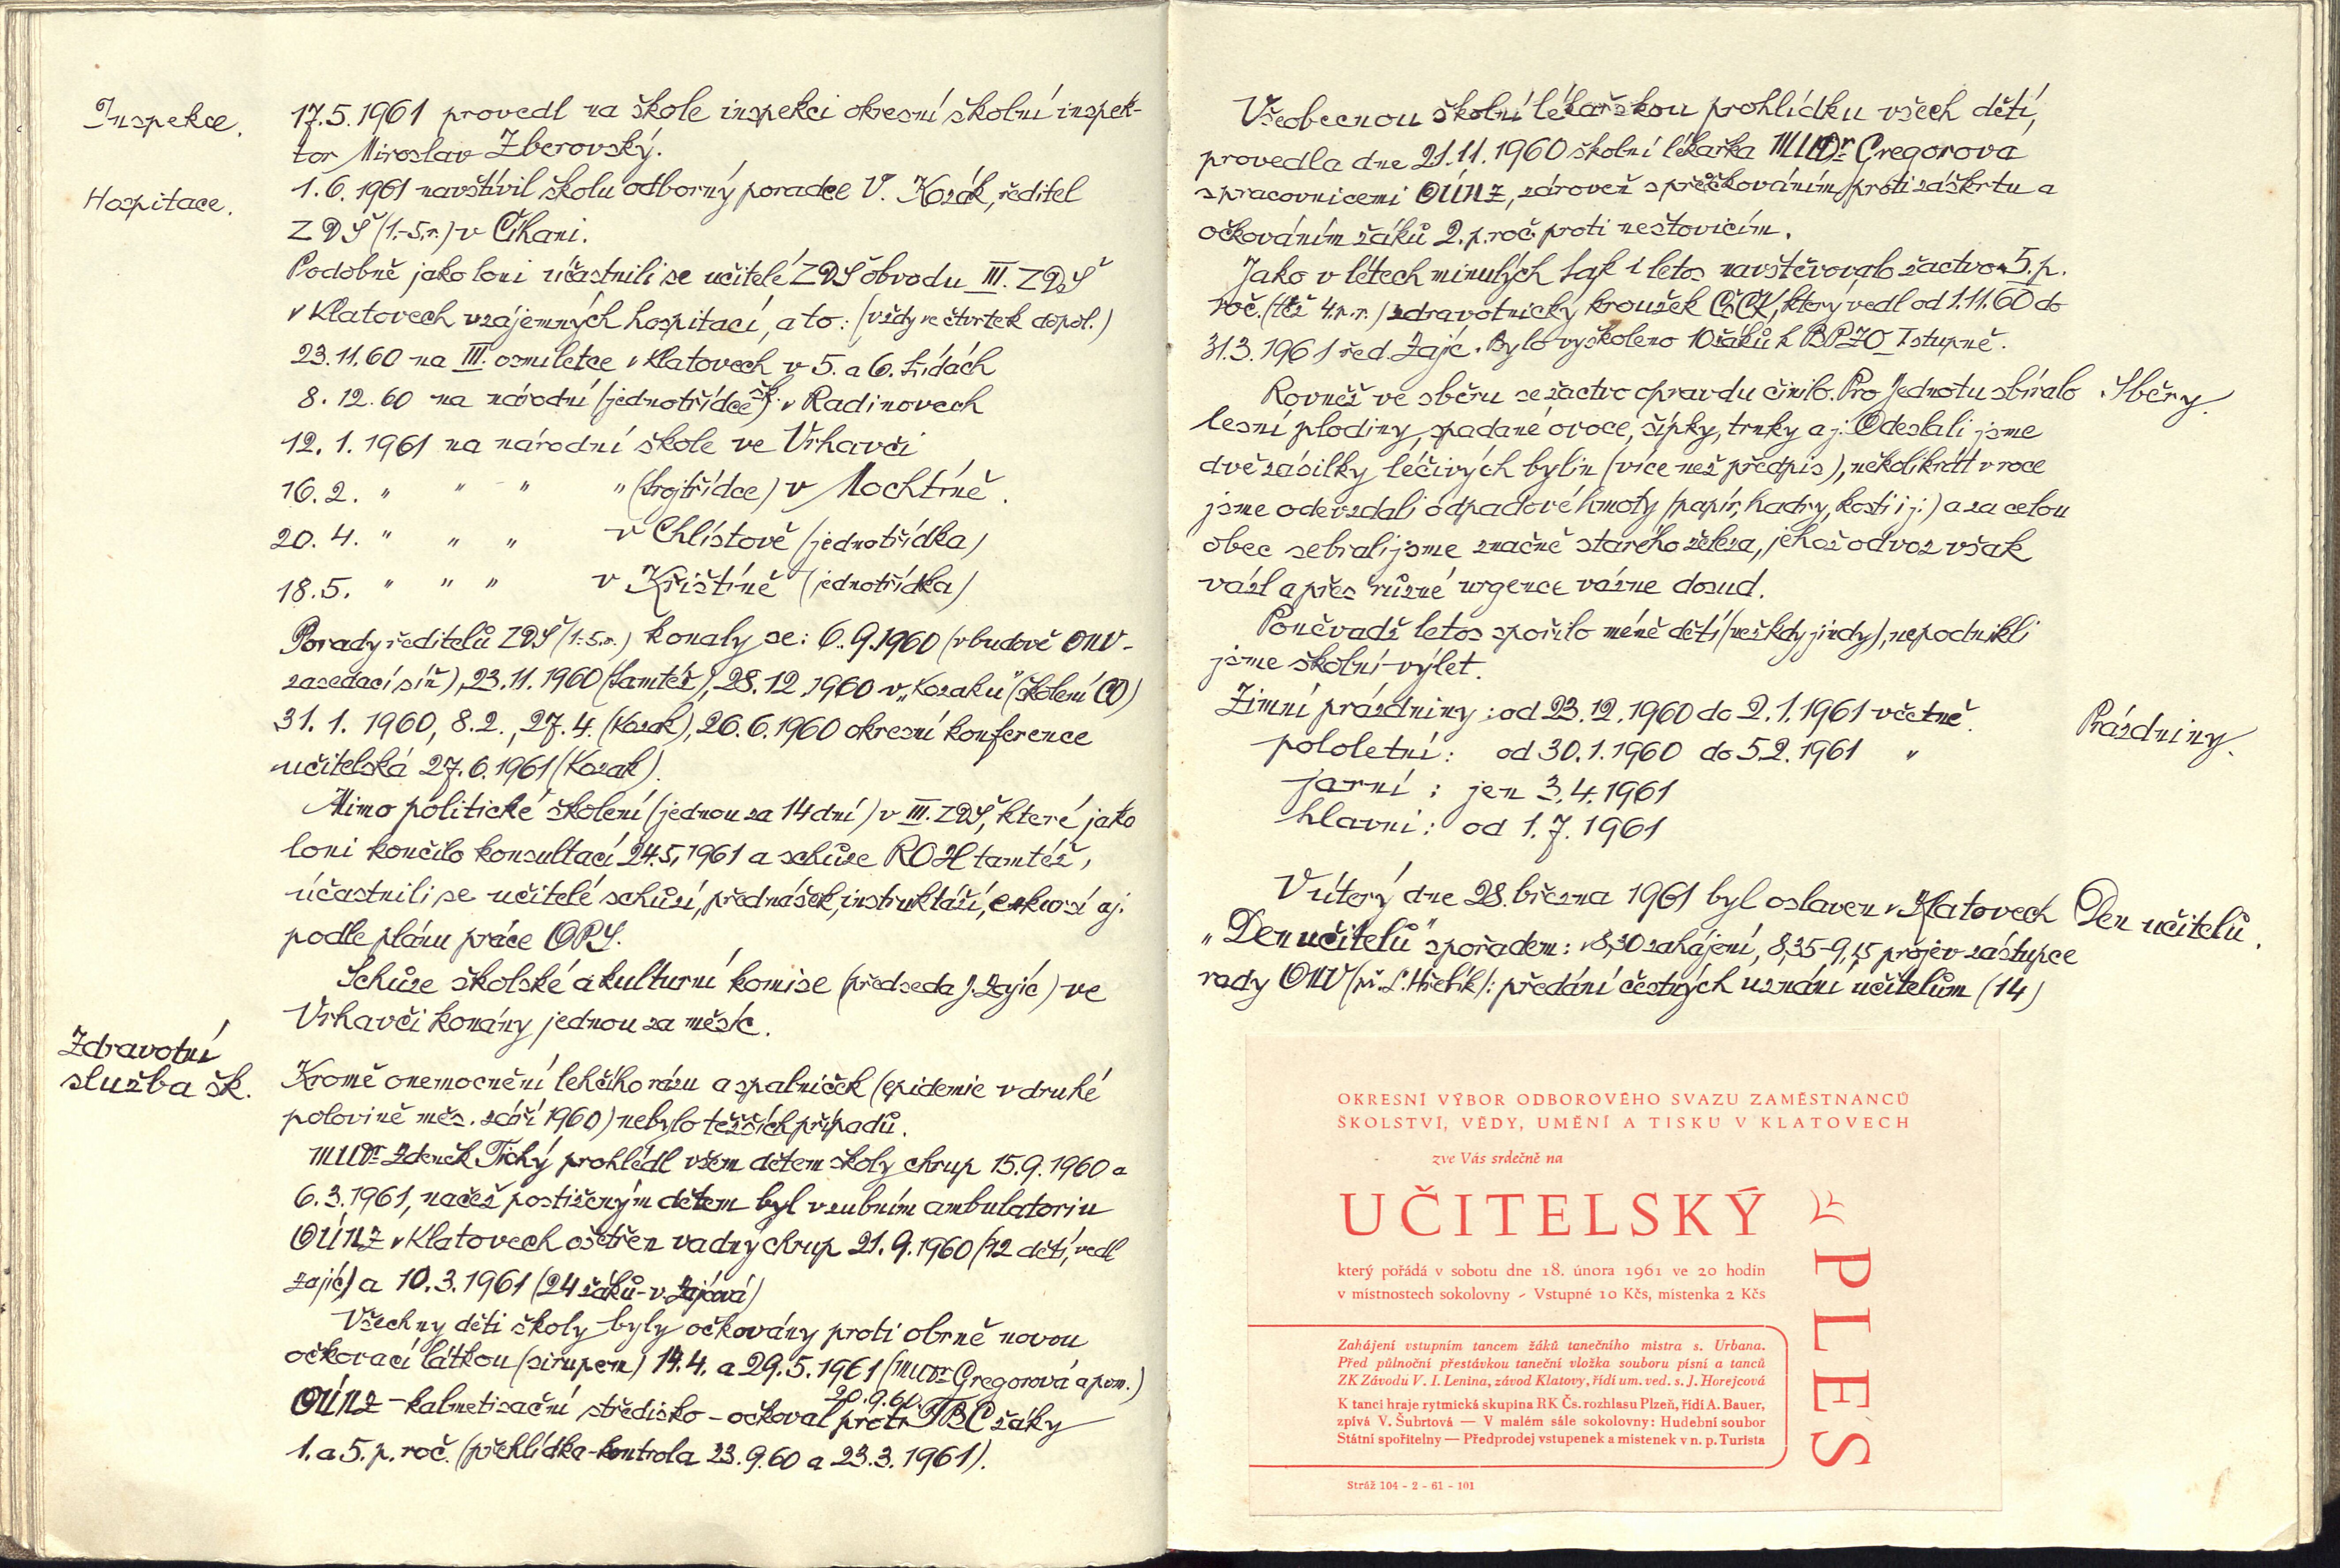 Inspekce.
17.5.1961 provedl na škole inspekci okresní školní inspek-
tor Miroslav Zberovský.
Hospitace.
1.6.1961 navštívil školu odborný poradce V. Kozák, ředitel
ZDŠ (1.-5.r.) v Číhani.
Podobně jako loni účastnili se učitelé ZDŠ obvodu III. ZDŠ
v Klatovech vzájemných hospitací, a to: (vždy ve čtvrtek dopol.)
23.11.60 na III. osmiletce v Klatovech v 5. a 6. třídách
8.12.60 na národní (jednotřídce) šk. v Radinovech
12.1.1961 na národní škole ve Vrhavči
16.2. " " " " (trojtřídce) v Mochtíně.
20.4. " " " v Chlístově (jednotřídka)
18.5. " " " v Křištíně (jednotřídka)
Porady ředitelů ZDŠ (1.-5.r.) konaly se: 6.9.1960 (v budově ONV-
zasedací síň), 23.11.1960 (tamtéž), 28.12.1960 v „Kozaku" (školení CO)
31.1.1960, 8.2., 27.4. (Kozak), 26.6.1960 okresní konference
učitelská 27.6.1961 (Kozak).
Mimo politické školení (jednou za 14 dní) v III. ZDŠ, které jako
loni končilo konsultací 24.5.1961 a schůze ROH tamtéž,
účastnili se učitelé schůzí, přednášek, instruktáží, exkursí aj.
podle plánu práce OPS.
Schůze školské a kulturní komise (předseda J. Zajíc) ve
Vrhavči konány jednou za měsíc.
Zdravotní
služba šk.
Kromě onemocnění lehčího rázu a spalniček (epidemie v druhé
polovině měs. září 1960) nebylo těžších případů.
MUDr. Zdeněk Tichý prohlédl všem dětem školy chrup 15.9.1960 a
6.3.1961, načež postiženým dětem byl v zubním ambulatoriu
OÚNZ v Klatovech ošetřen vadný chrup 21.9.1960 (12 dětí, vedl
Zajíc) a 10.3.1961 (24 žáků - v. Zajícová)
Všechny děti školy byly očkovány proti obrně novou
očkovací látkou (sirupem) 14.4. a 29.5.1961 (MUDr. Gregorová a pom.)
20.9.60.
OÚNZ - kalmetisační středisko - očkoval proti TBC žáky
1. a 5. p. roč. (přehlídka-kontrola 23.9.60 a 23.3.1961).
Všeobecnou školní lékařskou prohlídku všech dětí,
provedla dne 21.11.1960 školní lékařka MUDr. Gregorova
s pracovnicemi OÚNZ, zároveň s přeočkováním proti záškrtu a
očkováním žáků 2. p. roč. proti neštovicím.
Jako v létech minulých tak i letos navštěvovalo žactvo 5. p.
roč. (též 4. p. r.) zdravotnický kroužek ČSČK, který vedl od 1.11.60 do
31.3.1961 řed. Zajíc. Bylo vyškoleno 10 žáků k BPZO I stupně.
Sběry.
Rovněž ve sběru se žactvo opravdu činilo. Pro Jednotu sbíralo
lesní plodiny, spadané ovoce, šípky, trnky a j. Odeslali jsme
dvě zásilky léčivých bylin (více než předpis), několikrát v roce
jsme odevzdali odpadové hmoty (papír, hadry, kosti i j.) a za celou
obec sebrali jsme značně starého železa, jehož odvoz však
vázl a přes různé urgence vázne dosud.
Poněvadž letos spořilo méně dětí (než kdy jindy), nepodnikli
jsme školní výlet.
Prázdniny.
Zimní prázdniny: od 23.12.1960 do 2.1.1961 včetně.
pololetní: od 30.1.1960 do 5.2.1961 "
jarní: jen 3.4.1961
hlavní: od 1.7.1961
Den učitelů.
V úterý dne 28. března 1961 byl oslaven v Klatovech
„Den učitelů" s pořadem: v 8,30 zahájení, 8,35-9,15 projev zástupce
rady ONV (př. L. Hřebík): předání čestných uznání učitelům (14)
OKRESNÍ VÝBOR ODBOROVÉHO SVAZU ZAMĚSTNANCŮ
ŠKOLSTVÍ, VĚDY, UMĚNÍ A TISKU V KLATOVECH
zve Vás srdečně na
UČITELSKÝ
PLES
který pořádá v sobotu dne 18. února 1961 ve 20 hodin
v místnostech sokolovny - Vstupné 10 Kčs, místenka 2 Kčs
Zahájení vstupním tancem žáků tanečního mistra s. Urbana.
Před půlnoční přestávkou taneční vložka souboru písní a tanců
ZK Závodů V. I. Lenina, závod Klatovy, řídí um. ved. s. J. Horejcová
K tanci hraje rytmická skupina RK Čs. rozhlasu Plzeň, řídí A. Bauer,
zpívá V. Šubrtová — V malém sále sokolovny: Hudební soubor
Státní spořitelny — Předprodej vstupenek a místenek v n. p. Turista
Stráž 104 - 2 - 61 - 101